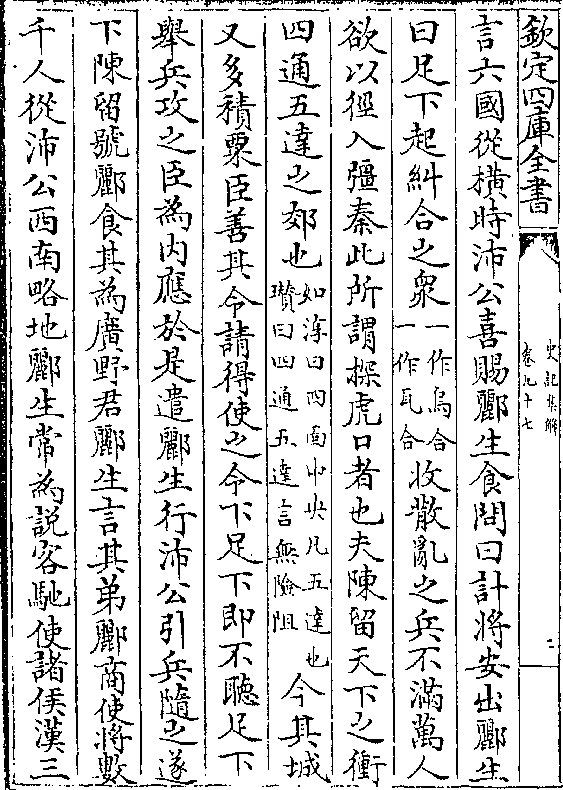 欽定四庫全書
史記集解
卷九十七
二
言六國從横時沛公喜賜酈生食問曰計將安出酈生
曰足下起糾合之衆
一作烏合
一作瓦合
收散亂之兵不滿萬人
欲以徑入彊秦此所謂探虎口者也夫陳留天下之衝
四通五達之郊也
如淳曰四面中央凡五達也
瓚曰四通五達言無險阻
今其城
又多積粟臣善其令請得使之令下足下即不聽足下
舉兵攻之臣為内應於是遣酈生行沛公引兵隨之遂
下陳留號酈食其為廣野君酈生言其弟酈商使將數
千人從沛公西南略地酈生常為説客馳使諸侯漢三